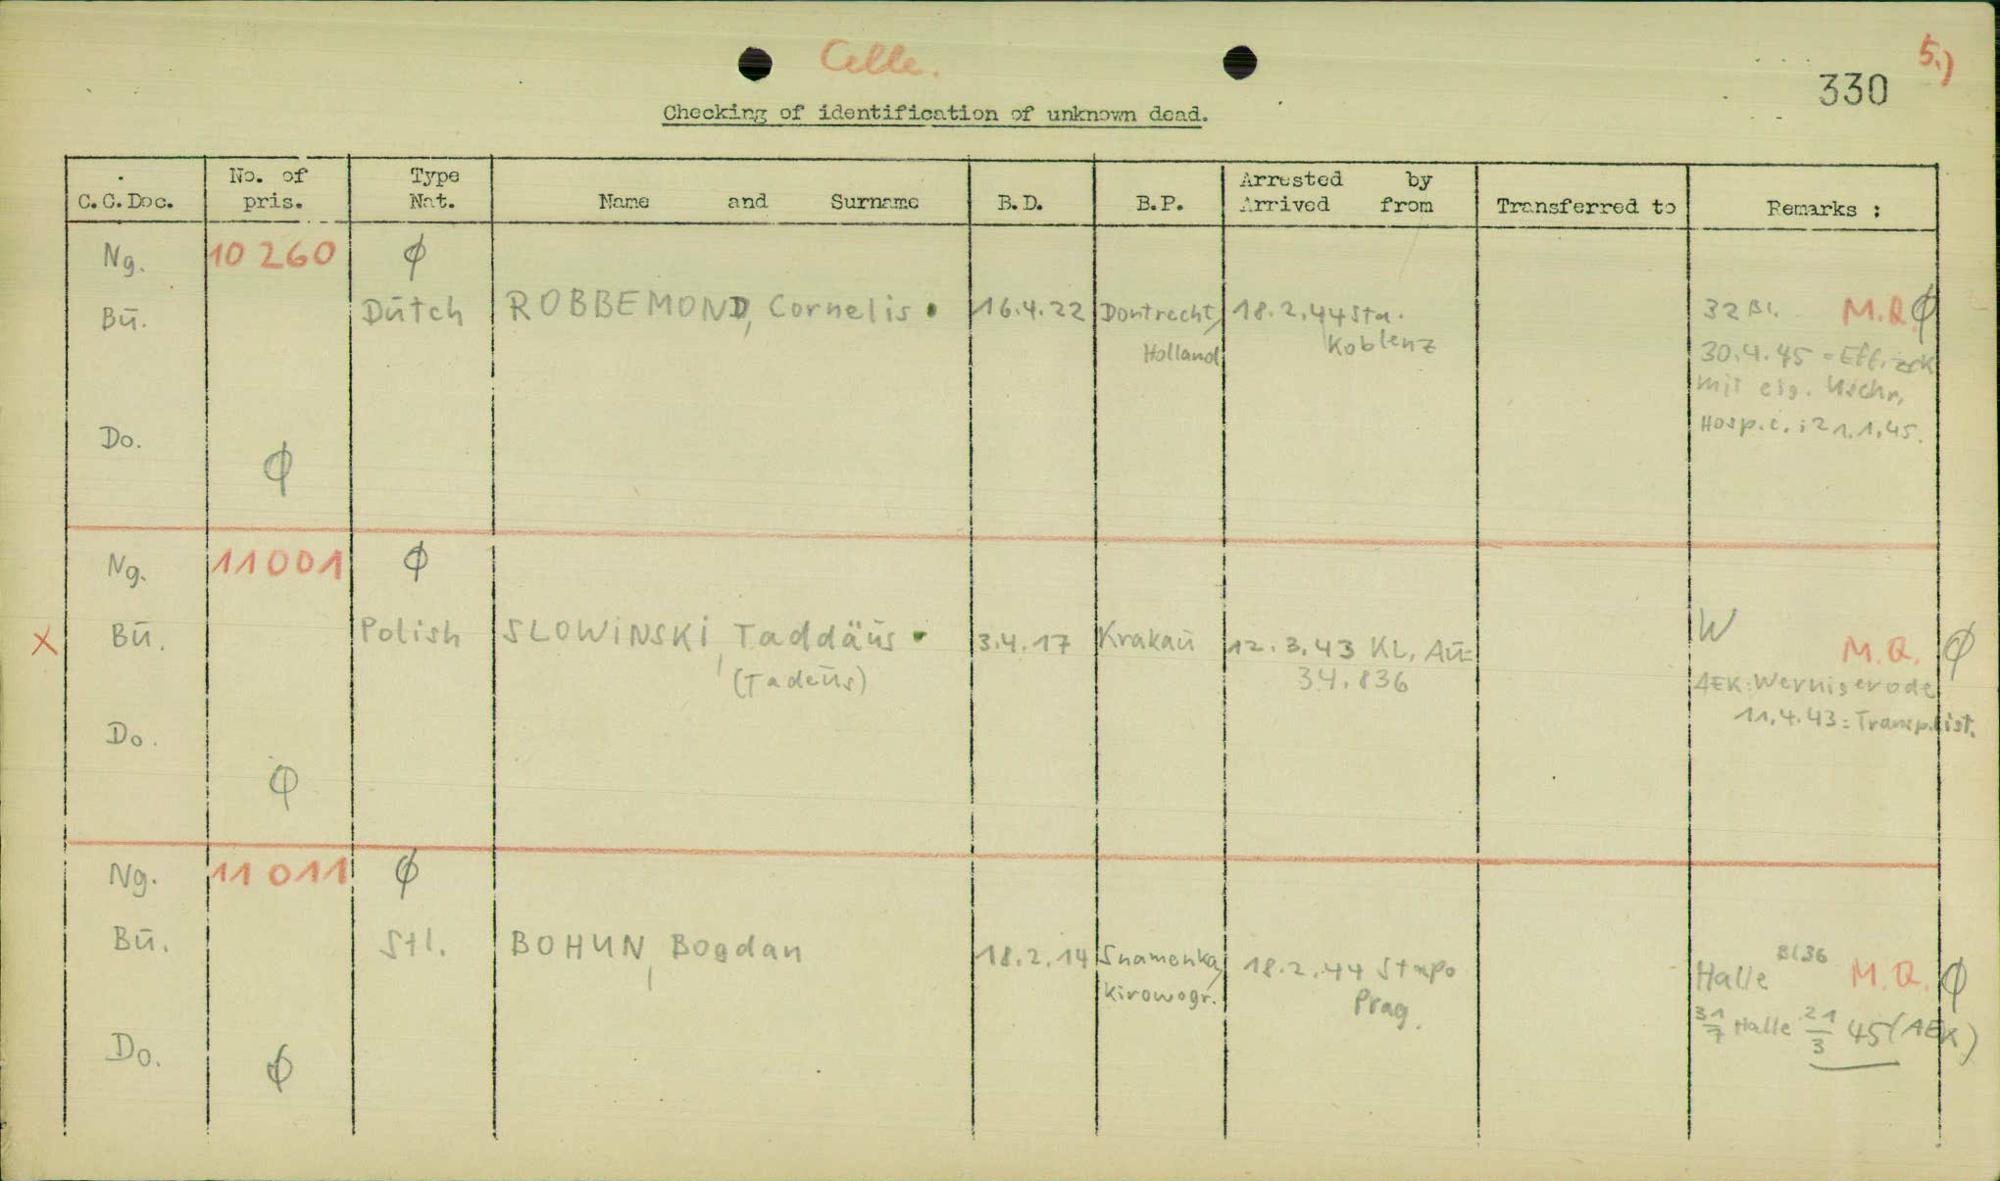 Celle.
5.)
330
Checking of identification of unknown dead.
C.C.Doc. No. of pris. Type Nat. Name and Surname B.D. B.P. Arrested by Arrived from Transferred to Remarks :
Ng. 10 260 ϕ
Bū. Dūtch ROBBEMOND, Cornelis 16.4.22 Dontrecht, 18.2.44 Sta. 32 Bl. M.Q. ϕ
Holland Koblenz 30.4.45 = Eff.
mit eig. Uschr,
Do. Hosp.c.: 21.1.45.
ϕ
Ng. 11001 ϕ
X Bū. Polish SLOWiNSKi, Taddäūs 3.4.17 Krakaū 12.3.43 KL. Aū= W M.Q. ϕ
(Tadeūs) 34.836 AEK Wernigerode
Do. 11.4.43 = Transp.list.
ϕ
Ng. 11 011 ϕ
Bū. Stl. BOHUN, Bogdan 18.2.14 Snamenka, 18.2.44 Stapo Halle Bl 36 M.Q. ϕ
Kirowogr. Prag. 31/7 Halle 21/3 45 (AEK)
Do.
ϕ